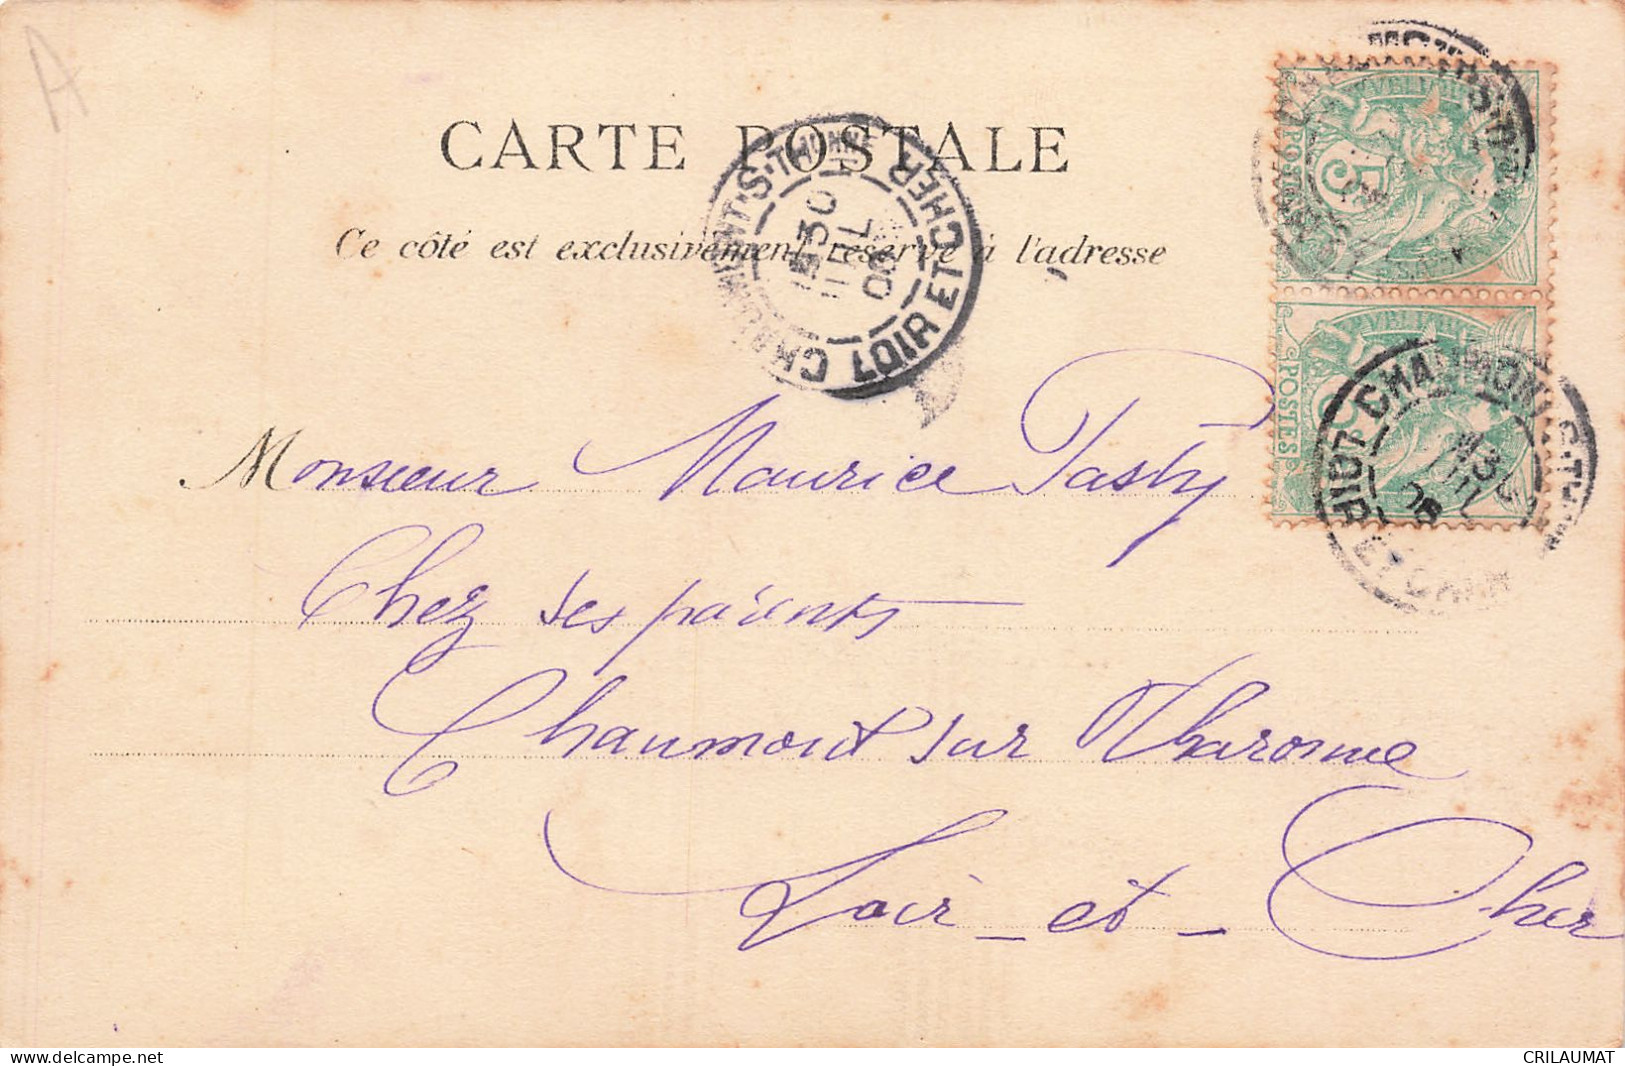 A
CARTE POSTALE
Ce côté est exclusivement réservé à l'adresse
CHAUMONT-S-THARONNE
30
JUIL
03
LOIR ET CHER
5
POSTES
CHAUMONT-S-TH
LOIR ET CHER
Monsieur Maurice
Chez ses parents
Chaumont sur Tharonne
Loir - et - Cher
delcampe.net
CRILAUMAT